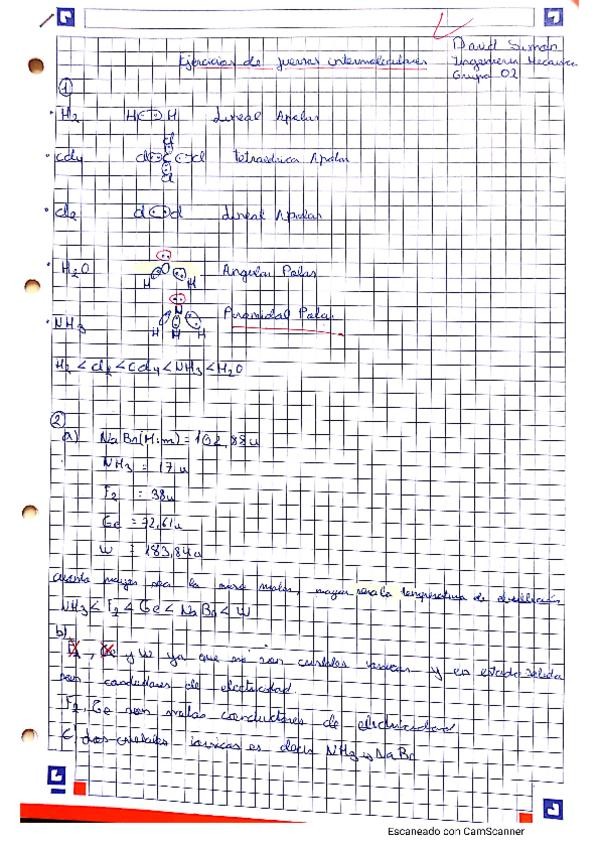 Ejercicios de fuerzas intermoleculares
David Simón
Ingeniería Mecánica
Grupo 02
1
· H2 H H Lineal Apolar
Cl
· CCl4 Cl C Cl tetraédrica Apolar
Cl
· Cl2 Cl Cl Lineal Apolar
· H2O O Angular Polar
H H
· NH3 N Piramidal Polar
H H H
H2 < Cl2 < CCl4 < NH3 < H2O
2
a) NaBr (M.m) = 102,89u
NH3 = 17u
F2 = 38u
Ge = 72,61u
W = 183,84u
cuanto mayor sea la masa molar, mayor será la temperatura de ebullición
NH3 < F2 < Ge < NaBr < W
b)
F2, Ge y W ya que no son cristales iónicos y en estado sólido
son conductores de electricidad
F2, Ge son malos conductores de electricidad
c) Los cristales iónicos es decir NH3 y NaBr
Escaneado con CamScanner